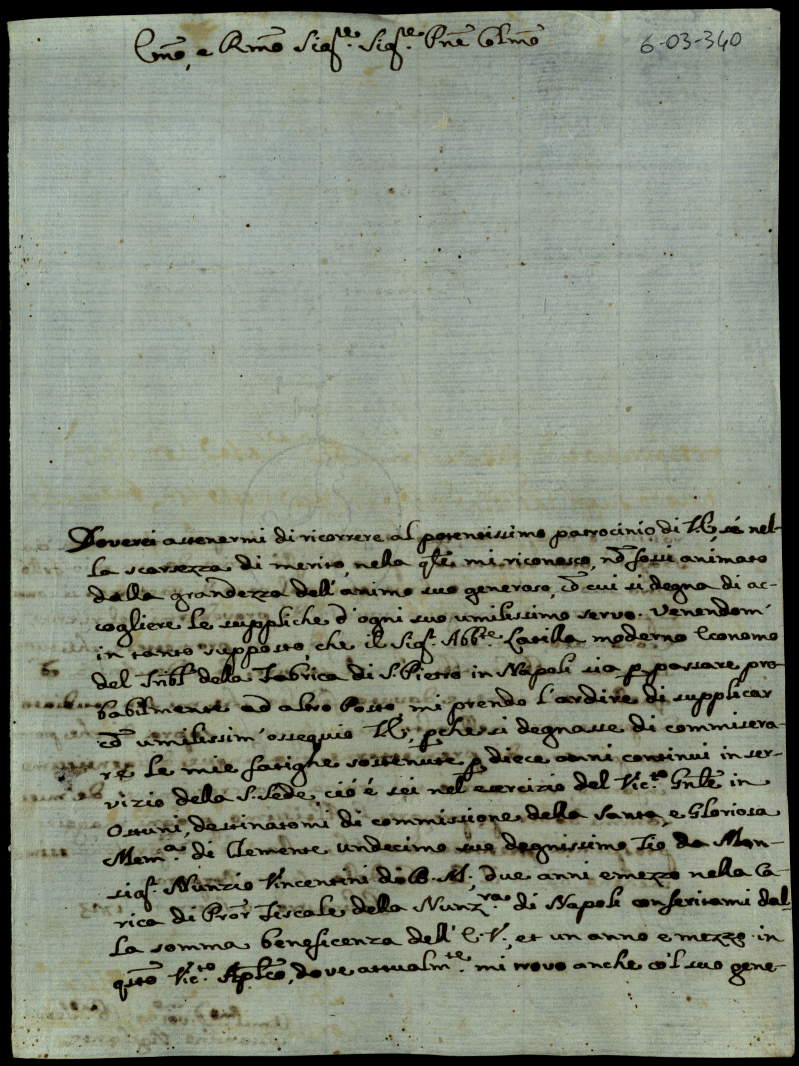 Emõ, e Rmõ Sigʳᵉ. Sigʳᵉ. Pñe Colmõ
6-03-340
Doverei astenermi di ricorrere al potentissimo patrocinio di V.E., sé nel-
la scarsezza di merito, nella qle mi riconosco, nõ fossi animato
dalla grandezza dell'animo suo generoso, cõ cui si degna di ac-
cogliere le suppliche d'ogni suo umilissimo servo. Venendom'
in tanto supposto, che il Sigʳ. Abbᵉ. Casilla moderno Economo
del Tribl̃e della Fabrica di S. Pietro in Napoli sia p passare pro-
babilmente ad altro Posto, mi prendo l'ardire di supplicar
cõ umilissim' ossequio V.E., pche si degnasse di commisera-
re le mie fatighe sostenute p diece anni continui in ser-
vizio della S. Sede, cioé é sei nell'esercizio del Vicᵗᵒ Gnl̃e in
Ostuni, destinatomi di commissione della Santa, e Gloriosa
Memᵃ. di Clemente undecimo suo degnissimo Tio da Mon-
sigʳ. Nunzio Vincentini di B. M.; due anni e mezzo nella Ca-
rica di Pror̃ Fiscale della Nunzʳᵃ. di Napoli conferitami dal-
la somma beneficenza dell'E.V., et un anno e mezzo in
qsto Vicᵗᵒ Aplcõ, dove attualmᵗᵉ. mi trovo anche co'l suo gene-